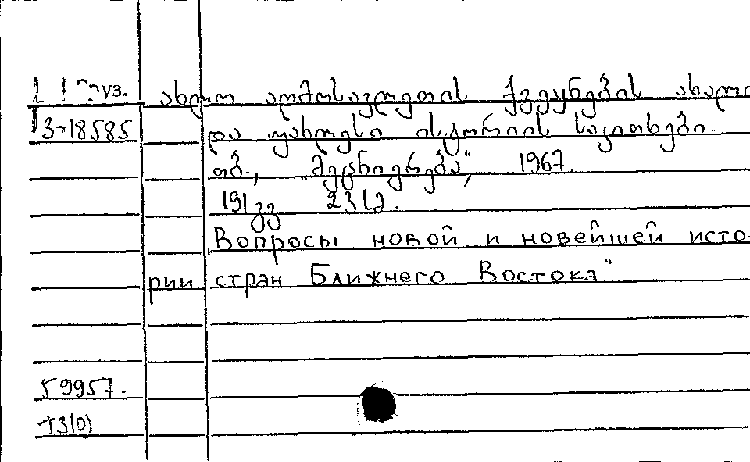 ახლო აღმოსავლეთის ქვეყნების ახალი
3-18585 და უახლესი ისტორიის საკითხები.
თბ., „მეცნიერება", 1967.
191 გვ 23 სმ.
Вопросы новой и новейшей исто-
рии стран Ближнего Востока"
59957.
T3(0)